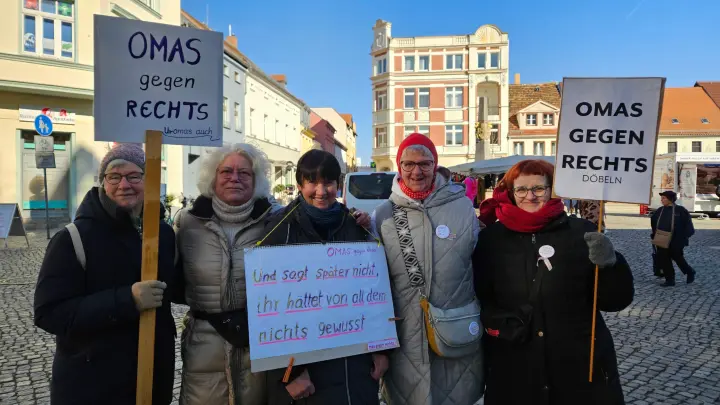 OMAS
gegen
RECHTS
u-omas auch
OMAS gegen
Und sagt später nicht,
ihr hättet von all dem
nichts gewusst
OMAS
GEGEN
RECHTS
DÖBELN